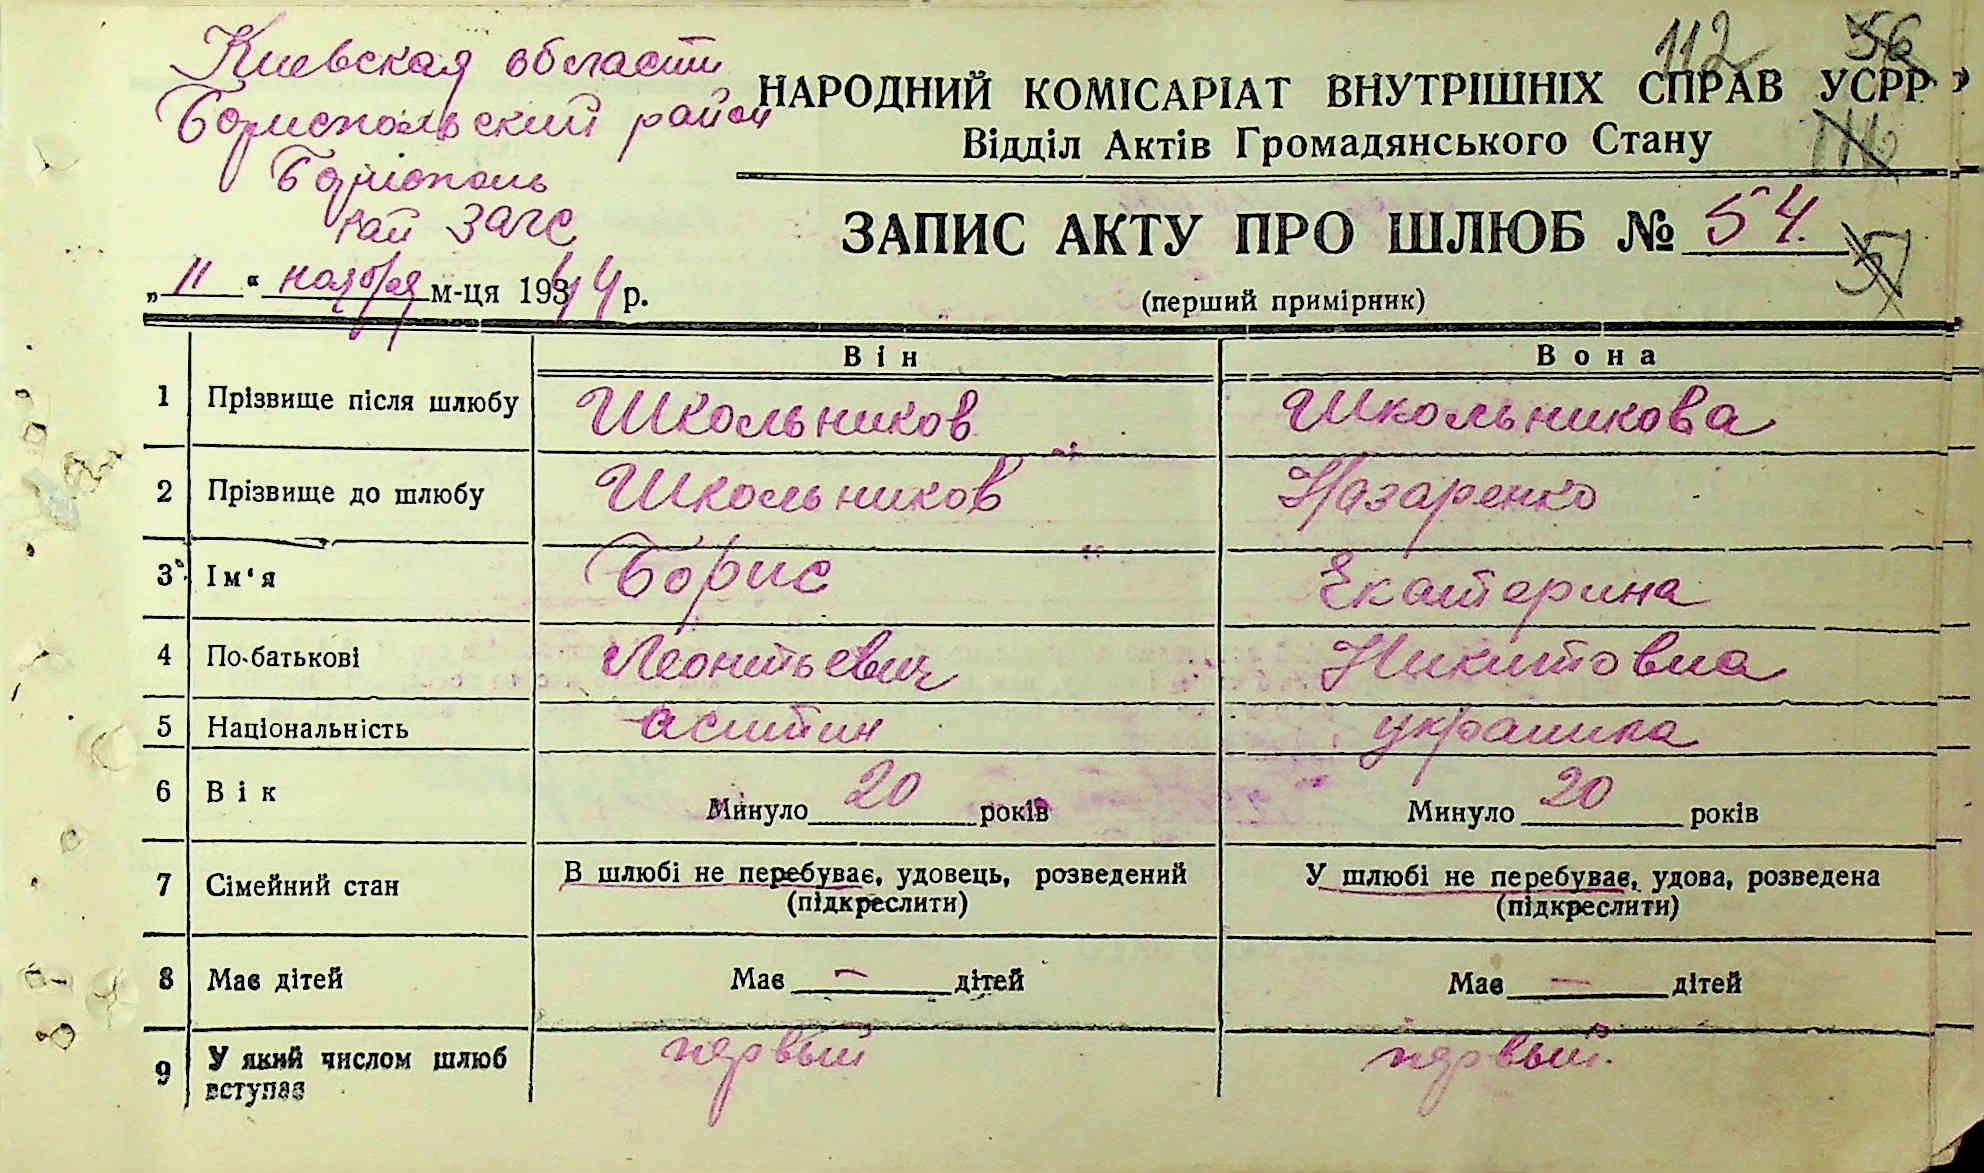 112 56
Киевская области
Бориспольский район
НАРОДНИЙ КОМІСАРІАТ ВНУТРІШНІХ СПРАВ УСРР
Відділ Актів Громадянського Стану
Борисполь
Рай ЗАГС
ЗАПИС АКТУ ПРО ШЛЮБ № 54.
57
„11“ ноября м-ця 1944 р.
(перший примірник)
Він Вона
1 Прізвище після шлюбу Школьников Школьникова
2 Прізвище до шлюбу Школьников Назаренко
3 Ім‘я Борис Екатерина
4 По-батькові Леонтьевич Никитовна
5 Національність аситин украинка
6 Вік Минуло 20 років Минуло 20 років
7 Сімейний стан В шлюбі не перебуває, удовець, розведений У шлюбі не перебуває, удова, розведена
(підкреслити) (підкреслити)
8 Має дітей Має — дітей Має — дітей
9 У який числом шлюб вступає первый первый.